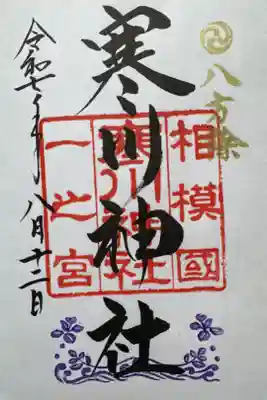 八方除
相模國
寒川神社
一之宮
寒川神社
令和七年
八月十二日